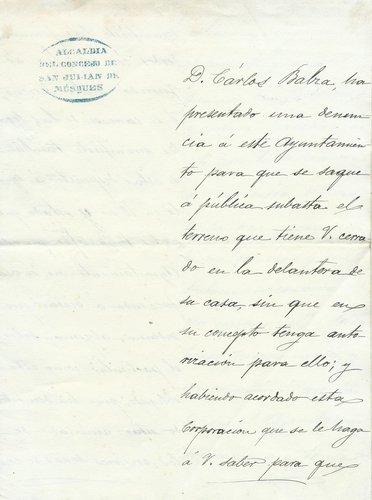 ALCALDIA
DEL CONCEJO DE
SAN JULIAN DE
MÚSQUES
D. Cárlos Balza, ha
presentado una denun
cia á este Ayuntamien
to para que se saque
á pública subasta el
terreno que tiene V. cerra
do en la delantera de
su casa, sin que en
su concepto tenga auto
rización para ello; y
habiendo acordado esta
Corporación que se le haga
á V. saber para que